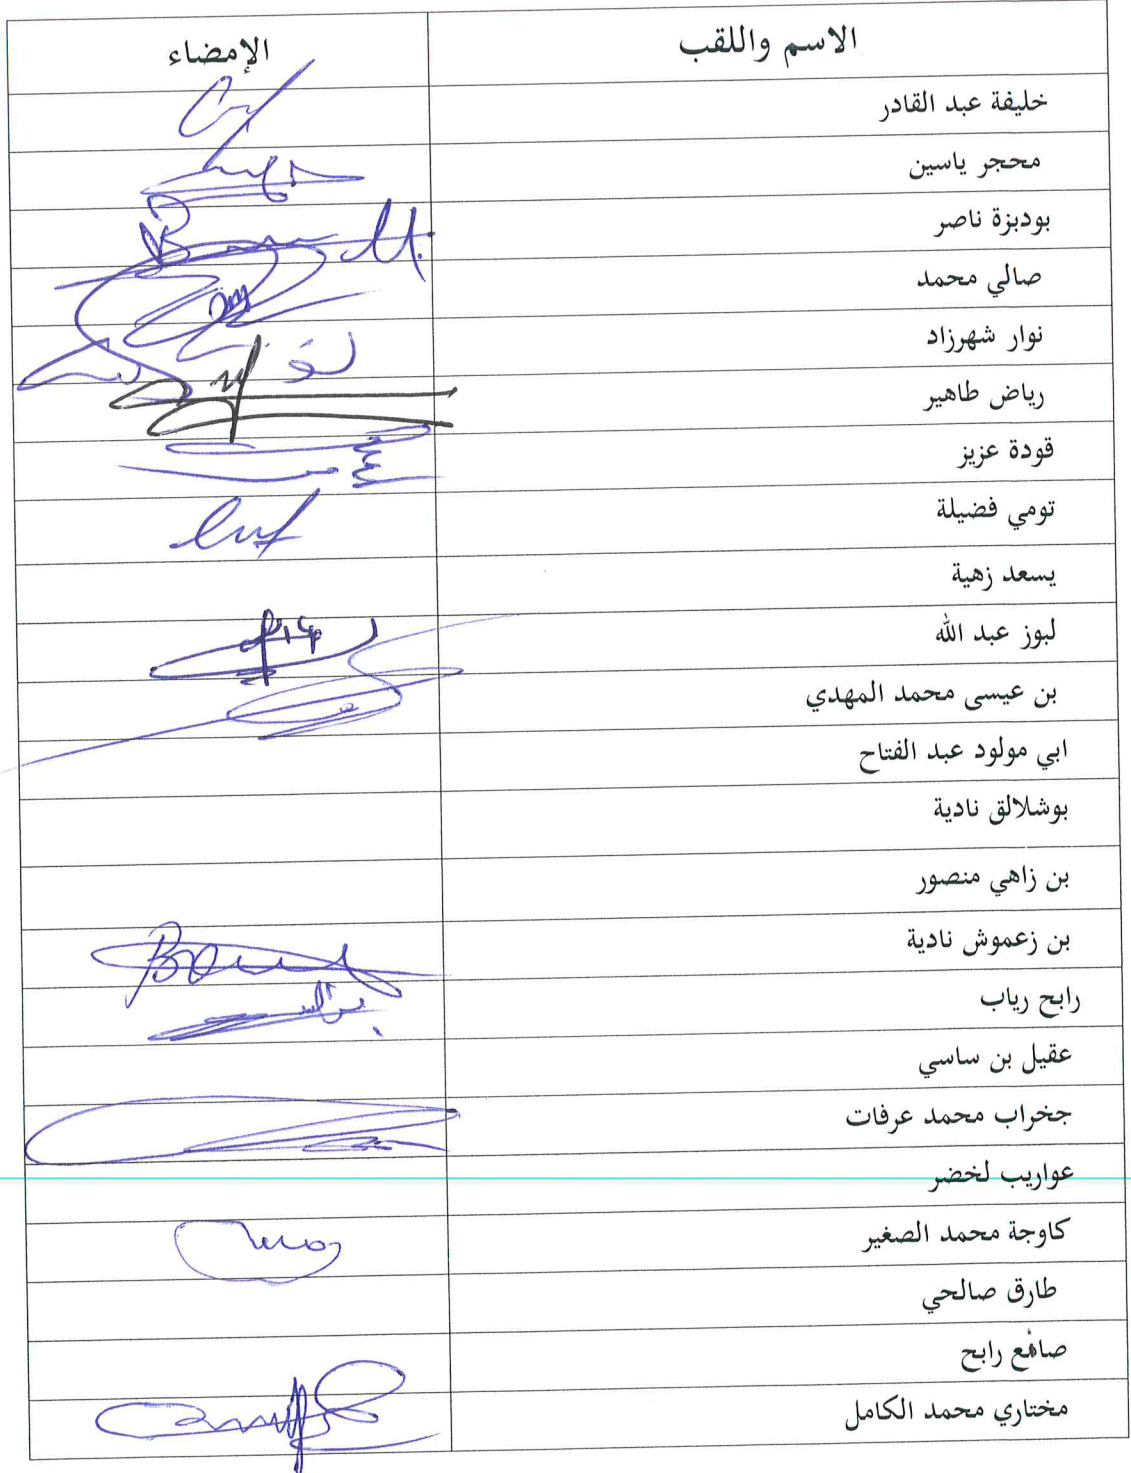 الاسم واللقب الإمضاء
خليفة عبد القادر
محجر ياسين
بودبزة ناصر
صالي محمد
نوار شهرزاد
رياض طاهير
قودة عزيز
تومي فضيلة
يسعد زهية
لبوز عبد الله
بن عيسى محمد المهدي
ابي مولود عبد الفتاح
بوشلالق نادية
بن زاهي منصور
بن زعموش نادية
رابح رياب
عقيل بن ساسي
جخراب محمد عرفات
عواريب لخضر
كاوجة محمد الصغير
طارق صالحي
رابح
مختاري محمد الكامل